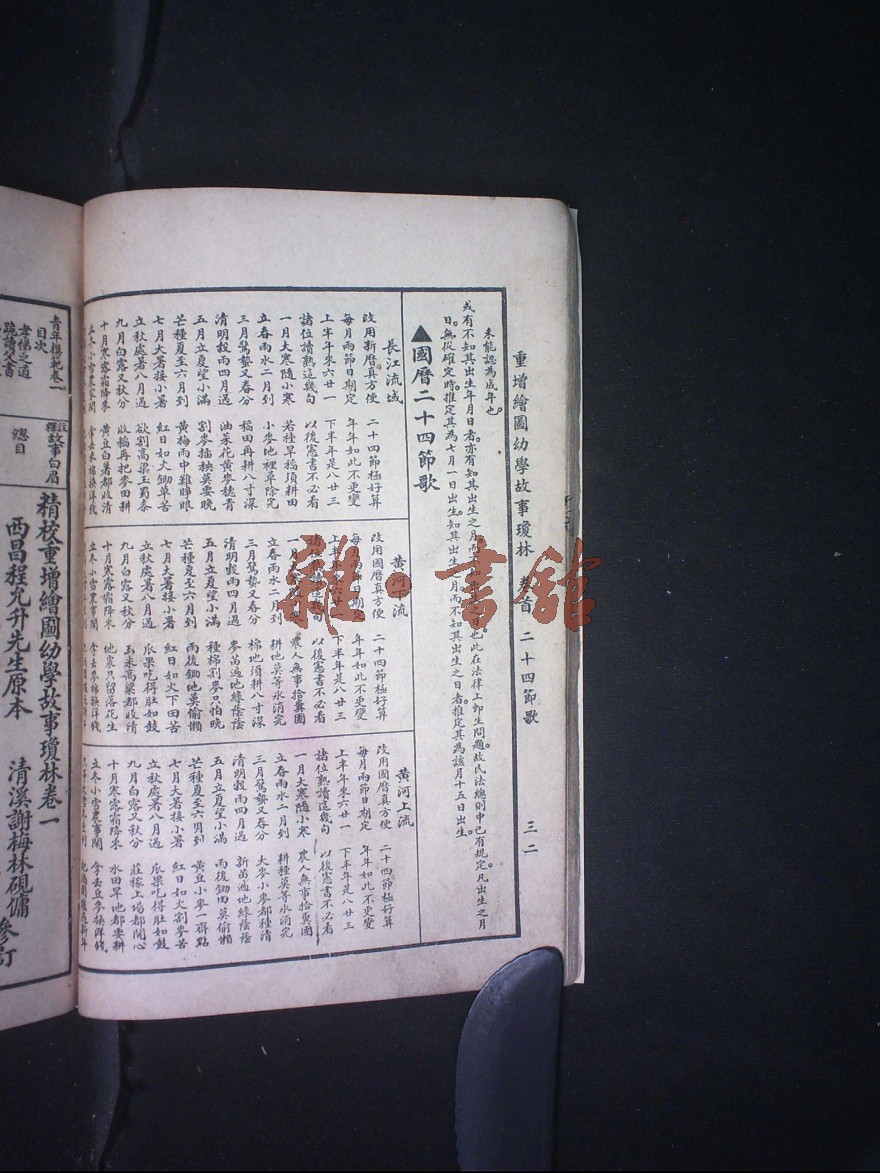 重增繪圖幼學故事瓊林 卷首 二十四節歌 三二
未能認為成年也。
或有不知其出生年月日者。亦有知其出生之月而
也此在法律上即生問題。故民法總則中已有規定。凡出生之月
日。無從確定時。推定其為七月一日出生。知其出生之月而不知其出生之日者。推定其為該月十五日出生。
▲國曆二十四節歌
長江流域
改用新曆真方便 二十四節極好算
每月兩節日期定 年年如此不更變
上半年來六廿一 下半年是八廿三
諸位讀熟這幾句 以後憲書不必看
一月大寒隨小寒 若種早稻須耕田
立春雨水二月到 小麥地裡草除完
三月驚蟄又春分 稻田再耕八寸深
清明穀雨四月過 油菜花黃麥穂青
五月立夏望小滿 割麥插秧莫要晚
芒種夏至六月到 黃梅雨中難睜眼
七月大暑接小暑 紅日如火鋤草苦
立秋處暑八月過 欲割高梁玉蜀黍
九月白露又秋分 收稻再把麥田耕
十月寒露霜降來 黃豆白薯都收清
立冬小雪農家閒 拿去米棉換洋錢
黃河下流
改用國曆真方便 二十四節極好算
每月兩節日期定 年年如此不更變
上半年來六廿一 下半年是八廿三
諸位熟讀這幾句 以後憲書不必看
一月大寒隨小寒 農人無事拾糞團
立春雨水二月到 耕地莫等冰消完
三月驚蟄又春分 棉地須耕八寸深
清明穀雨四月過 麥苗遍地綠陰陰
五月立夏望小滿 種棉割麥只怕晚
芒種夏至六月到 雨後鋤地莫偷懶
七月大暑接小暑 紅日如火下田苦
立秋處暑八月過 瓜果吃得肚如鼓
九月白露又秋分 玉米高粱都收清
十月寒露霜降來 他家只留落花生
立冬小雪農事閒 拿去麥棉換洋錢
黃河上流
改用國曆真方便 二十四節極好算
每月兩節日期定 年年如此不更變
上半年來六廿一 下半年是八廿三
諸位熟讀這幾句 以後憲書不必看
一月大寒隨小寒 農人無事拾糞團
立春雨水二月到 耕種莫等冰消完
三月驚蟄又春分 大麥小麥都種清
清明穀雨四月過 新苗遍地綠陰陰
五月立夏望小滿 雨後鋤田莫偷懶
芒種夏至六月到 黃豆小麥一齊點
七月大暑接小暑 紅日如火割麥苦
立秋處暑八月過 瓜果吃得肚如鼓
九月白露又秋分 莊稼上場都開心
十月寒露霜降來 水田旱地都要耕
立冬小雪農事閒 拿去豆麥換洋錢
青年模範卷一
目次
孝悌之道
跪讀父書
故事白眉
總目
精校重增繪圖幼學故事瓊林卷一
西昌程允升先生原本 清溪謝梅林硯傭參訂
雅·書館